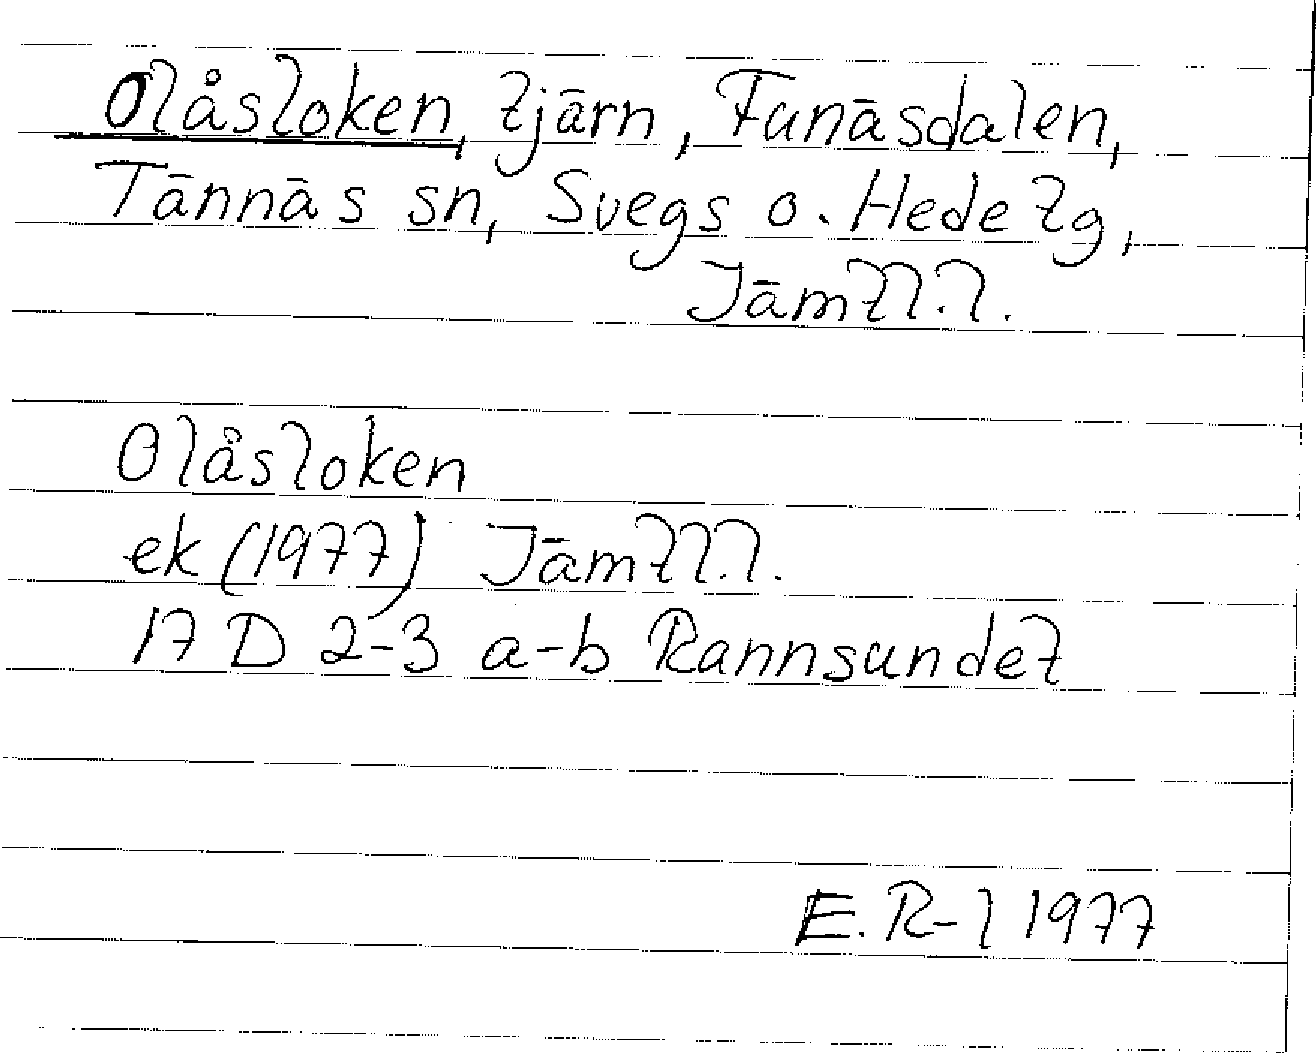 Olåsloken, tjärn, Funäsdalen,
Tännäs sn, Svegs o. Hede tg,
Jämtl.l.
Olåsloken
ek (1977) Jämtl.l.
17 D 2-3 a-b Rannsundet
E. R-l 1977